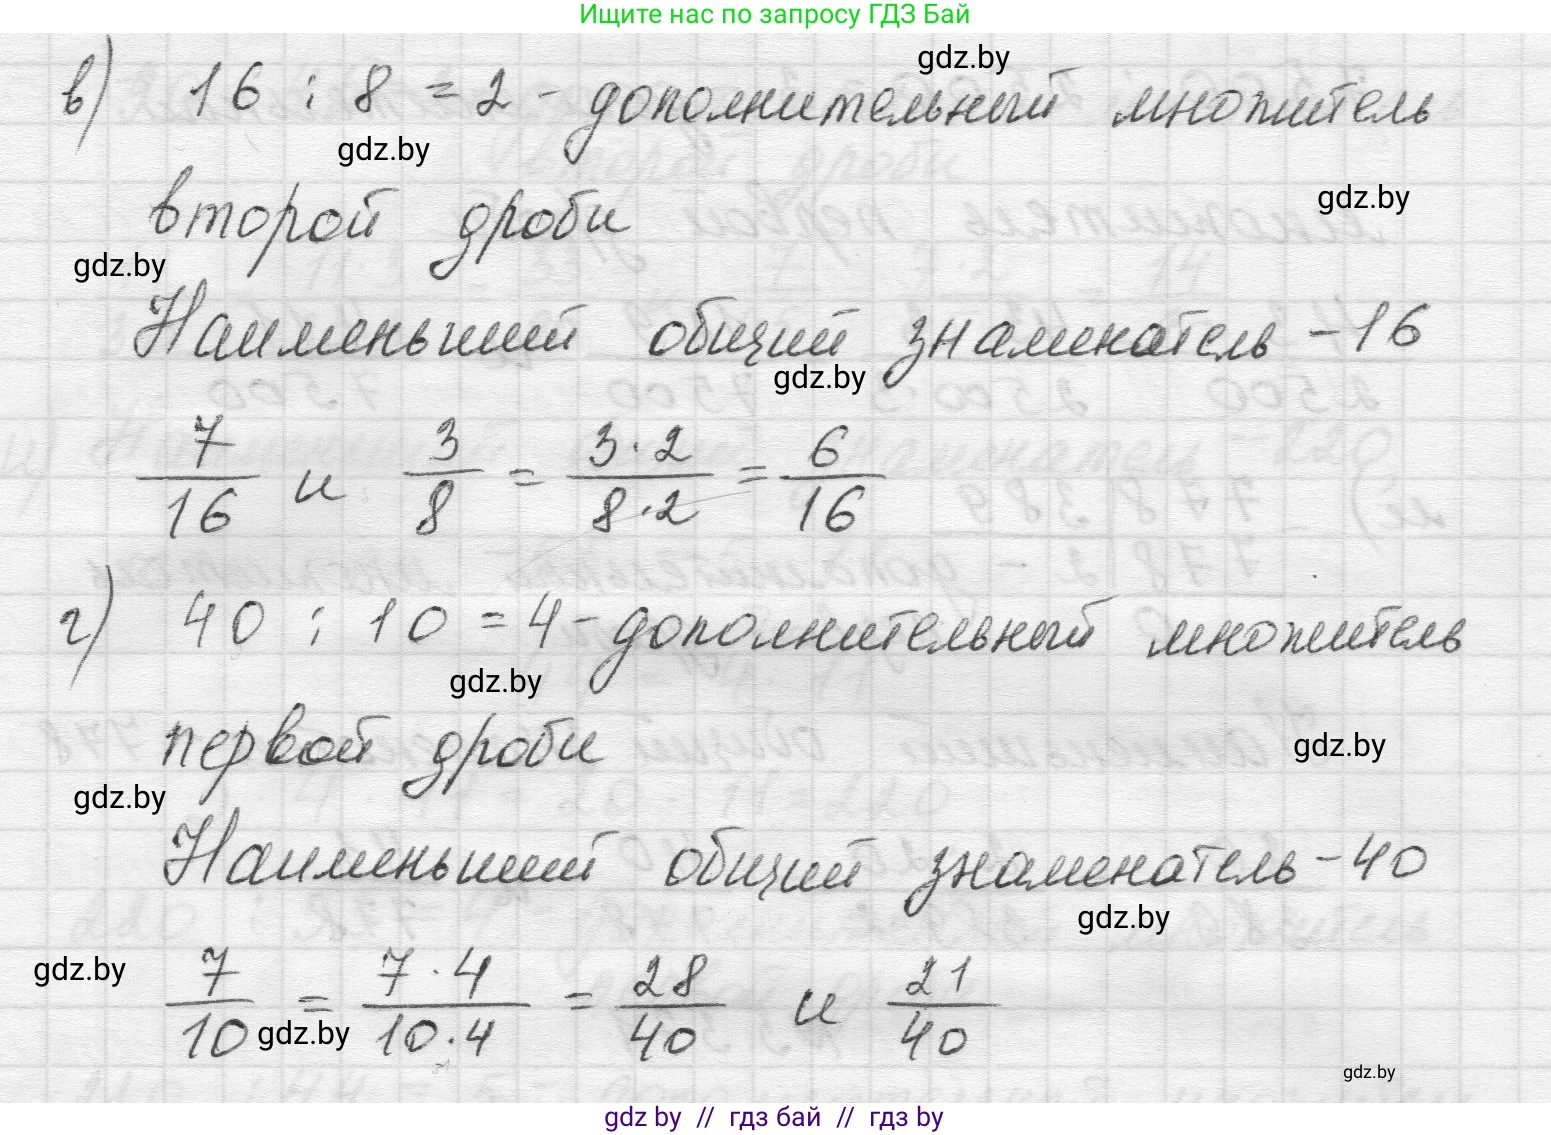 Ищите нас по запросу ГДЗ Бай
gdz.by
в) 16 : 8 = 2 - дополнительный множитель
gdz.by
gdz.by
второй дроби
gdz.by
Наименьший общий знаменатель - 16
gdz.by
7/16 и 3/8 = 3·2/8·2 = 6/16
г) 40 : 10 = 4 - дополнительный множитель
gdz.by
первой дроби
gdz.by
gdz.by
Наименьший общий знаменатель - 40
gdz.by
gdz.by
7/10 = 7·4/10·4 = 28/40 и 21/40
gdz.by
gdz.by
gdz by // гдз бай // гдз by